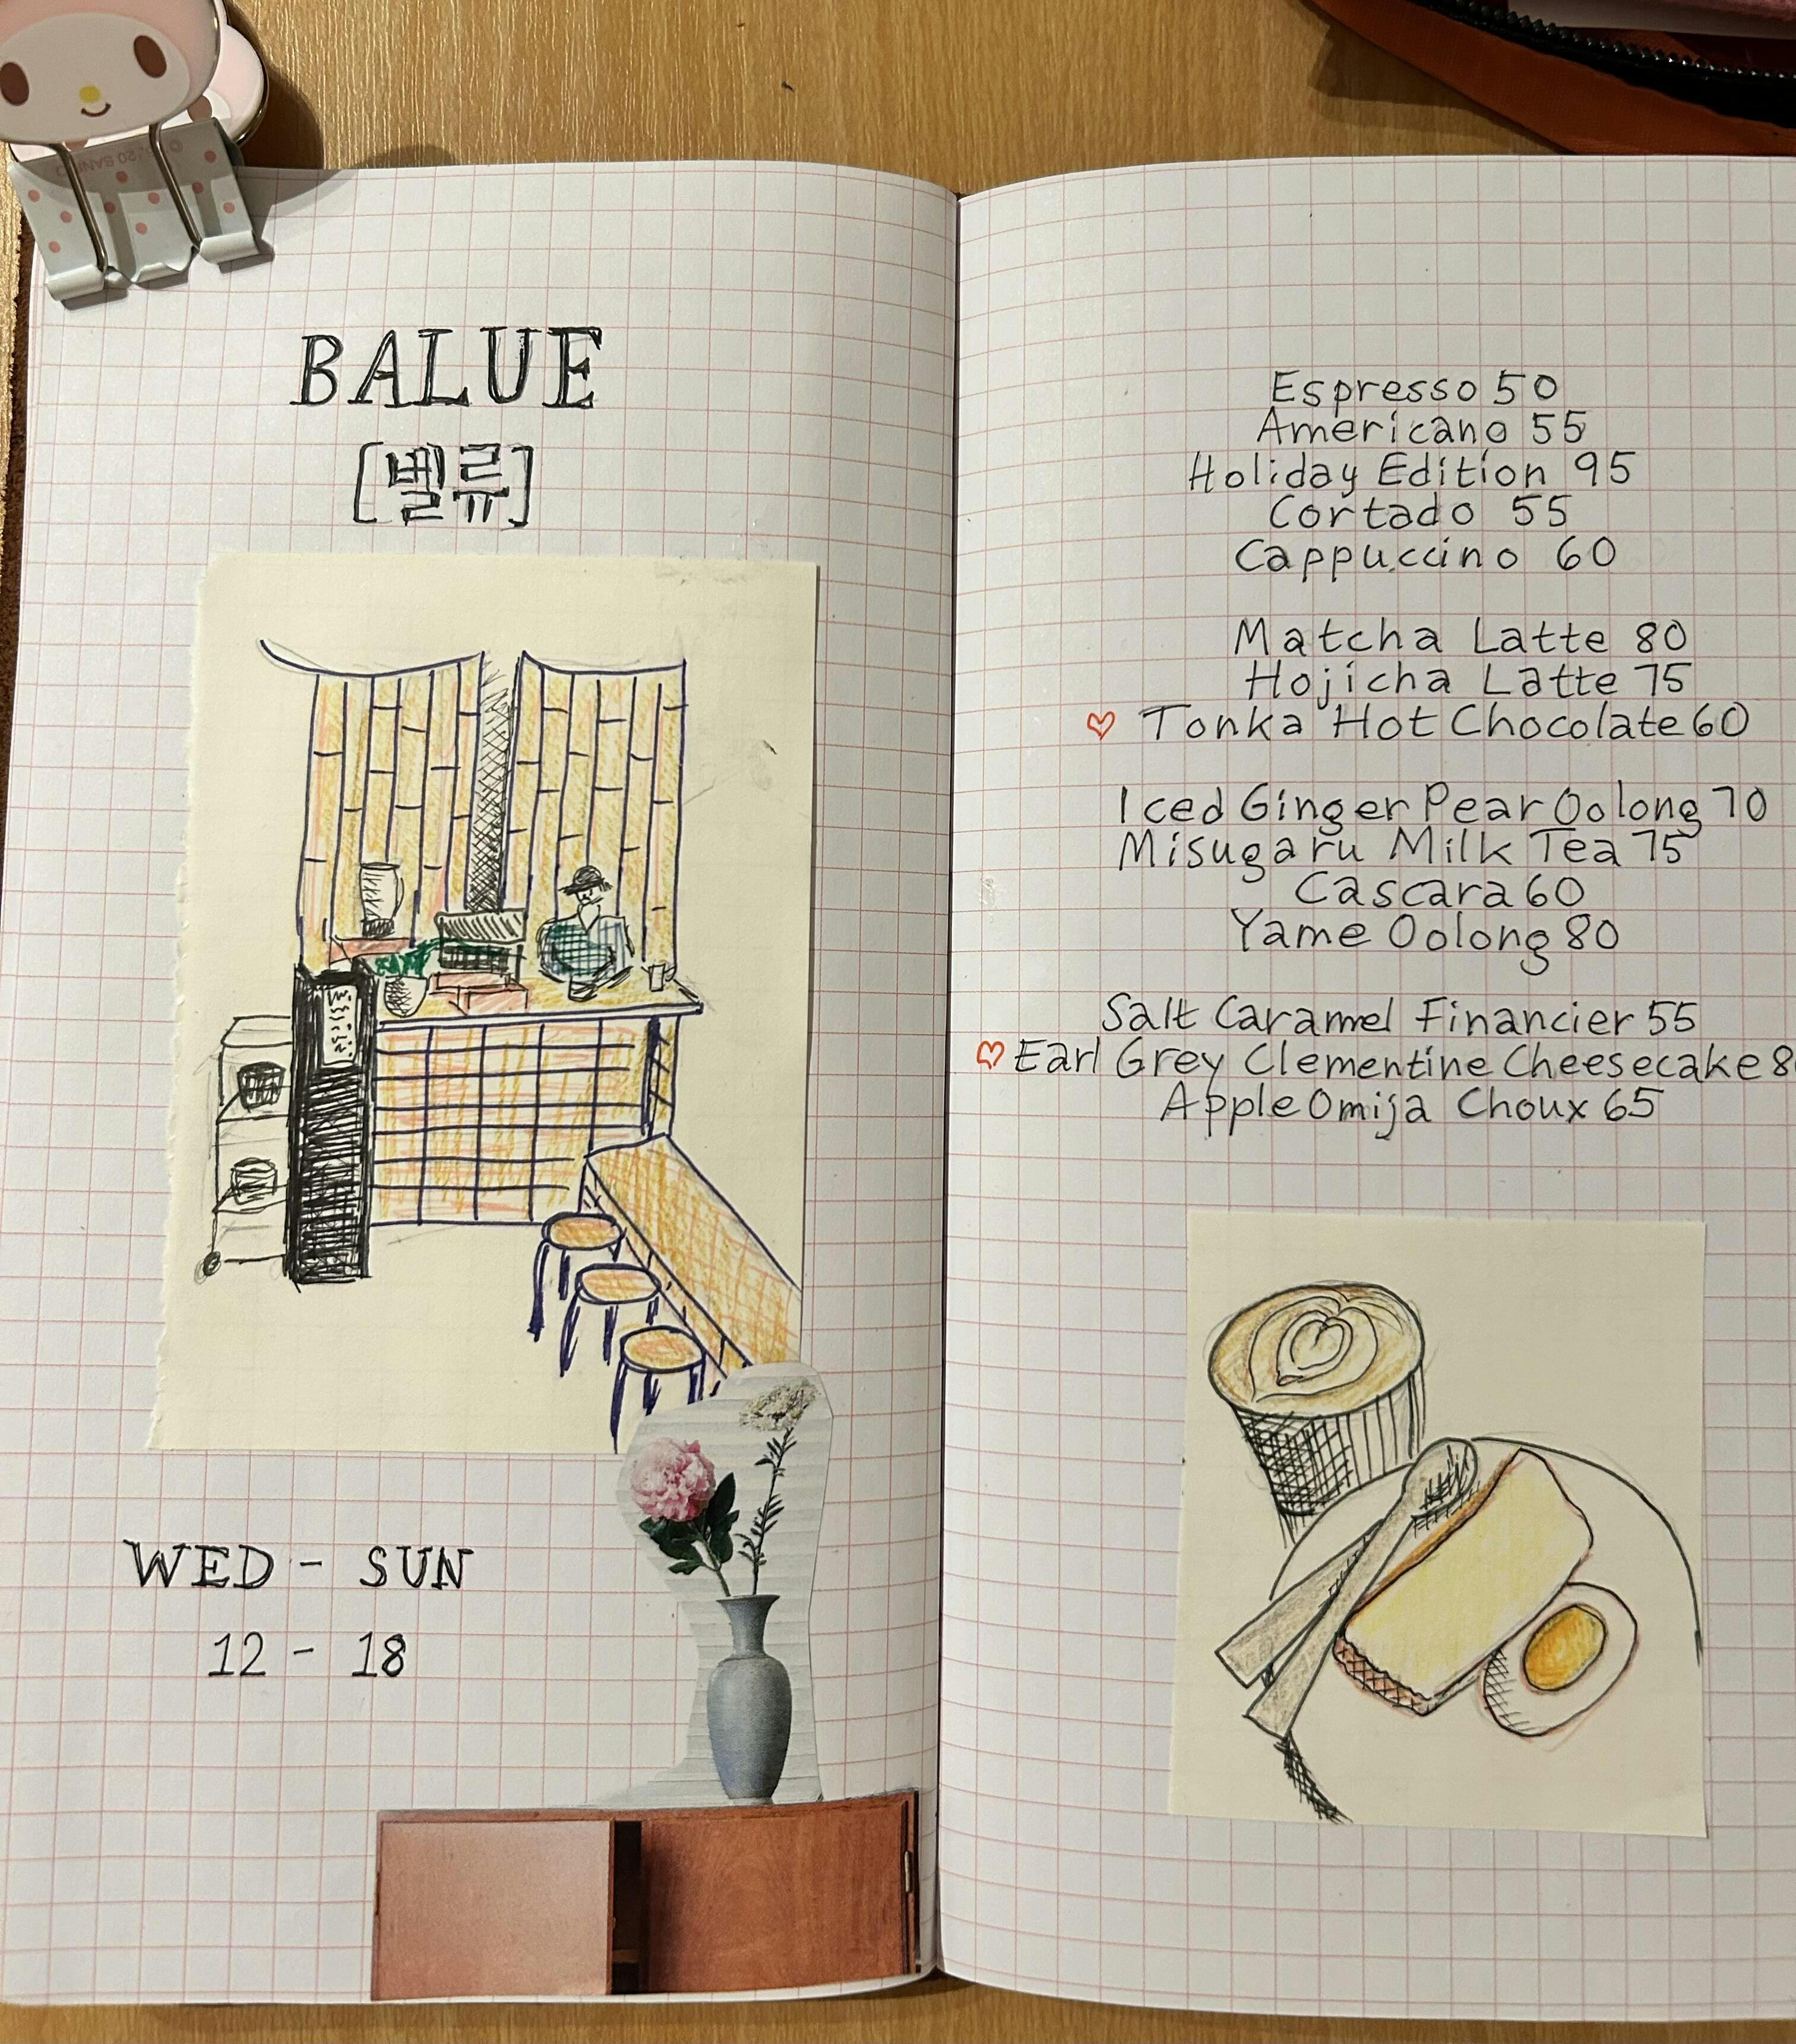 BALUE
[벨류]
WED - SUN
12 - 18
Espresso 50
Americano 55
Holiday Edition 95
Cortado 55
Cappuccino 60
Matcha Latte 80
Hojicha Latte 75
Tonka Hot Chocolate 60
Iced Ginger Pear Oolong 70
Misugaru Milk Tea 75
Cascara 60
Yame Oolong 80
Salt Caramel Financier 55
Earl Grey Clementine Cheesecake
Apple Omija Choux 65